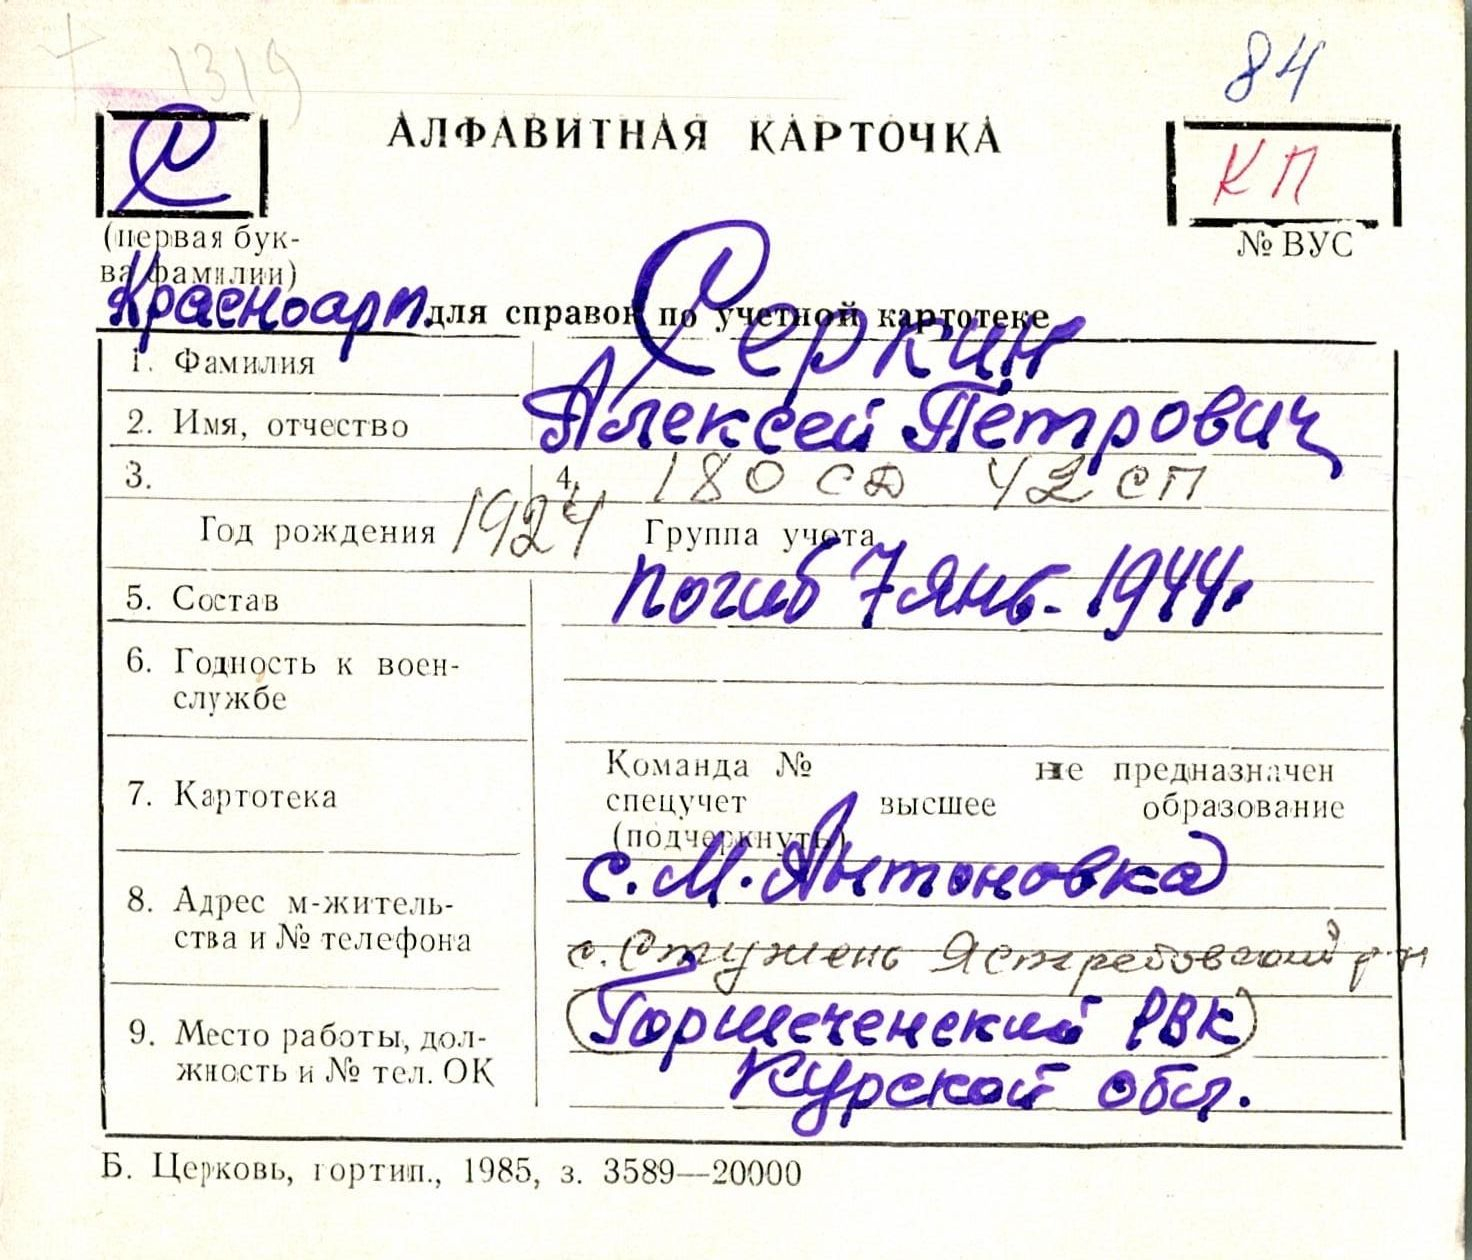 1319
84
С
АЛФАВИТНАЯ КАРТОЧКА
КП
(первая бук-
ва фамилии)
№ ВУС
Красноарм. для справок по учетной картотеке
1. Фамилия Серкин
2. Имя, отчество Алексей Петрович
3. 4. 180 СД 42 СП
Год рождения 1924 Группа учета
5. Состав погиб 7 янв. 1944г.
6. Годность к воен-
службе
Команда № не предназначен
7. Картотека спецучет высшее образование
(подчеркнуть)
с. М. Антоновка
8. Адрес м-житель-
ства и № телефона с. Стужень Ястребовский р-н
9. Место работы, дол-
жность и № тел. ОК Горшеченский РВК
Курской обл.
Б. Церковь, гортип., 1985, з. 3589—20000